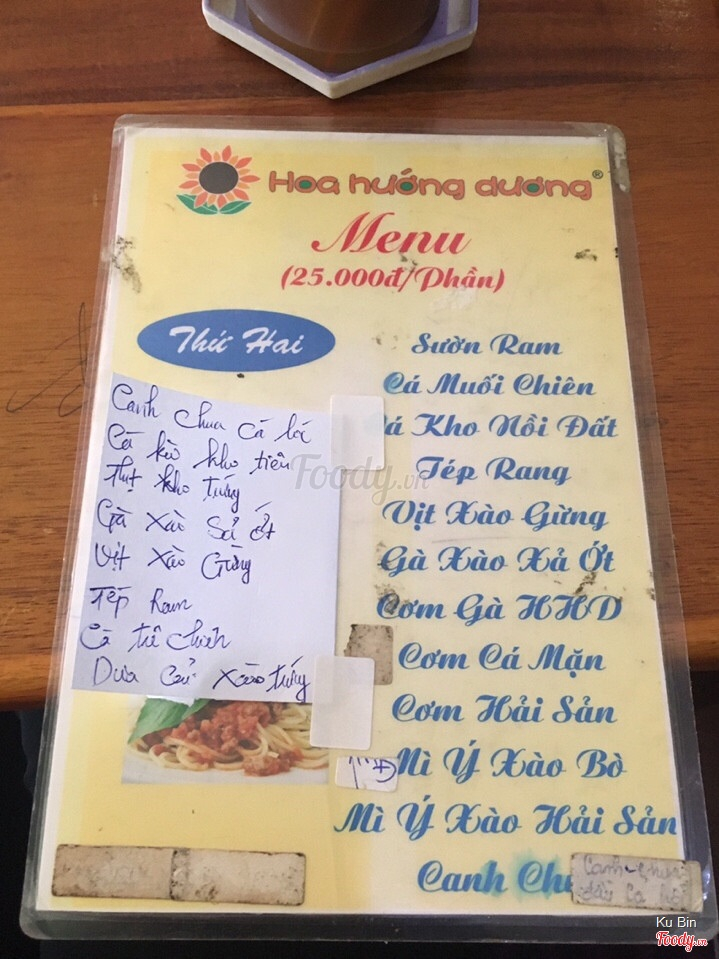 Hoa hướng dương®
Menu
(25.000đ/Phần)
Thứ Hai
Canh chua cá lóc
Cá kèo kho tiêu
Thịt kho trứng
Gà xào sả ớt
Vịt xào Gừng
Tép Ram
Cá trê chiên
Dưa cải xào trứng
Sườn Ram
Cá Muối Chiên
á Kho Nồi Đất
Tép Rang
Vịt Xào Gừng
Gà Xào Xả Ớt
Cơm Gà HHD
Cơm Cá Mặn
Cơm Hải Sản
Mì Ý Xào Bò
Mì Ý Xào Hải Sản
Canh Chu
Canh chua
đầu Cá
Foody.vn
Ku Bin
Foody.vn